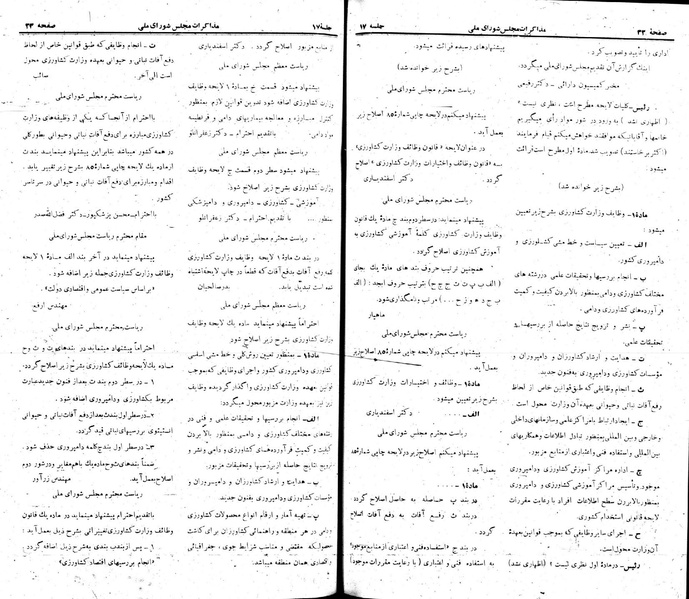 صفحهٔ ۳۲
مذاکرات مجلس شورای ملی
جلسه ۱۷
اداری را تأیید و تصویب کرد.
اینک گزارش آن تقدیم مجلس شورای ملی میگردد.
مخبر کمیسیون دارائی - دکتر رفیعی
رئیس - کلیات لایحه مطرح است، نظری نیست؟
(اظهاری نشد) به ورود در شور مواد رأی میگیریم
خانمها و آقایانیکه موافقند خواهش میکنم قیام فرمایند
(اکثر برخاستند) تصویب شد ماده اول مطرح است قرائت
میشود.
(بشرح زیر خوانده شد)
ماده ۱ - وظایف وزارت کشاورزی بشرح زیر تعیین
میشود
الف - تعیین سیاست و خط مشی کشاورزی و
دامپروری کشور.
ب - انجام بررسیها و تحقیقات علمی در رشته های
مختلف کشاورزی و دامی بمنظور بالا بردن کیفیت و کمیت
فرآورده های کشاورزی و دامی
پ - نشر و ترویج نتایج حاصله از بررسیها و
تحقیقات علمی.
ت - هدایت و ارشاد کشاورزان و دامپروران و
مؤسسات کشاورزی و دامپروری به فنون جدید.
ث - انجام وظایفی که طبق قوانین خاص از لحاظ
دفع آفات نباتی و حیوانی بعهده آن وزارت محول است.
ج - ایجاد ارتباط با مراکز علمی و سازمانهای داخلی
و خارجی و بین المللی بمنظور تبادل اطلاعات و همکاریهای
بین المللی و استفاده فنی و اعتباری از منابع مزبور.
چ - اداره مراکز آموزش کشاورزی و دامپروری
موجود و تأسیس مراکز آموزشی کشاورزی و دامپروری
بمنظور بالا بردن سطح اطلاعات افراد با رعایت مقررات
لایحه قانونی استخدام کشوری.
ح - اجرای سایر وظایفی که بموجب قوانین بعهدهٔ
آن وزارت محول است.
رئیس - در مادهٔ اول نظری نیست؟ (اظهاری نشد)
پیشنهادهای رسیده قرائت میشود.
(بشرح زیر خوانده شد)
ریاست مجلس شورای ملی
پیشنهاد میکنم در لایحه چاپی شماره ۸۵ اصلاح زیر
بعمل آید.
در عنوان لایحه «قانون وظائف وزارت کشاورزی»
به «قانون وظائف و اختیارات وزارت کشاورزی» اصلاح
گردد. دکتر اسفندیاری
ریاست مجلس شورای ملی
پیشنهاد مینماید در سطر دوم بند ج ماده یك قانون
وظایف وزارت کشاورزی کلمهٔ آموزشی کشاورزی به
آموزش کشاورزی اصلاح گردد.
همچنین ترتیب حروف بند های ماده یك بجای
(الف ب پ ت ث ج چ ح) بترتیب حروف ابجد: (الف
ب ج د ه و ز ح ...) مرتب و نامگذاری شود.
ماهیار
ریاست مجلس شورای ملی
پیشنهاد میکنم در لایحه چاپی شماره ۸۵ اصلاح زیر
بعمل آید.
ماده ۱ -
وظائف و اختیارات وزارت کشاورزی
بشرح زیر تعیین میشود
الف - ..... دکتر اسفندیاری
ریاست مجلس شورای ملی
پیشنهاد میکنم اصلاح زیر در لایحه چاپی شماره ۸۵
بعمل آید:
ماده ۱ - .....
در بند پ حاصله به حاصل اصلاح گردد
در بند ث رفع آفات به دفع آفات اصلاح
گردد.
در بند ج «استفاده فنی و اعتباری از منابع مزبور»
به استفاده فنی و اعتباری (با رعایت مقررات موجود)
جلسهٔ ۱۷
مذاکرات مجلس شورای ملی
صفحه ۳۳
از منابع مزبور اصلاح گردد. دکتر اسفندیاری
ریاست معظم مجلس شورای ملی
پیشنهاد میشود قسمت خ بمادهٔ ۱ وظایف
وزارت کشاورزی اضافه شود تدوین قوانین لازم بمنظور
کنترل مبارزه و معالجه بیماریهای دامی و قرنطینه
مواد دامی. باتقدیم احترام - دکتر زعفرانلو
ریاست معظم مجلس شورای ملی
پیشنهاد میشود سطر دوم قسمت چ لایحه وظایف
وزارت کشاورزی بشرح زیر اصلاح شود:
آموزشی - کشاورزی - دامپروری و دامپزشکی
منظور .... با تقدیم احترام - دکتر زعفرانلو
ریاست محترم مجلس شورای ملی
در بند ث مادهٔ ۱ لایحه وظائف وزارت کشاورزی
کلمه رفع آفات بدفع آفات که قطعاً در چاپ لایحه اشتباه
شده است تبدیل یابد. بدر صالحیان
ریاست معظم مجلس شورای ملی
احتراماً پیشنهاد مینماید ماده یك لایحه وظایف
وزارت کشاورزی بشرح زیر اصلاح شود
ماده ۱ - بمنظور تعیین روش کلی و خط مشی اساسی
کشاورزی و دامپروری کشور و اجرای وظایفی که بموجب
قوانین بعهده وزارت کشاورزی واگذار گردیده وظایف
وزارت مزبور بشرح زیر تعیین میگردد:
الف - انجام بررسیها و تحقیقات علمی و فنی در
رشته های مختلف کشاورزی و دامی بمنظور بالا بردن
کیفیت و کمیت فرآورده های کشاورزی و دامی و نشر و
ترویج نتایج حاصل از بررسیها و تحقیقات مزبور.
ب - هدایت و ارشاد کشاورزان و دامپروران و
مؤسسات کشاورزی و دامپروری بفنون جدید
پ - تهیه آمار و ارقام انواع محصولات کشاورزی
و دامی در هر منطقه و راهنمائی کشاورزان برای کاشت
محصولیکه مقتضی و مناسب شرایط جوی، جغرافیائی
و اقتصادی همان منطقه میباشد.
ت - انجام وظایفی که طبق قوانین خاص از لحاظ
دفع آفات نباتی و حیوانی بعهده وزارت کشاورزی محول
است الی آخر. صائب
ریاست محترم مجلس شورای ملی
با احترام از آنجا که یکی از وظیفه های وزارت
کشاورزی مبارزه برای دفع آفات نباتی و حیوانی بطور کلی
در همه کشور میباشد بنابر این پیشنهاد مینماید بند ث
از ماده یك لایحه چاپی شماره ۸۵ بشرح زیر تغییر یابد.
اقدام و مبارزه برای دفع آفات نباتی و حیوانی در سرتاسر
کشور.
با احترام - محسن پزشکپور - دکتر فضل الله صدر
مقام محترم ریاست مجلس شورای ملی
پیشنهاد مینماید در آخر بند الف مادهٔ ۱ لایحه
وظائف وزارت کشاورزی جمله زیر اضافه شود.
«بر اساس سیاست عمومی و اقتصادی دولت»
مهندس ارفع
ریاست محترم مجلس شورای ملی
احتراماً پیشنهاد مینماید در بندهای ت و ث و ح
ماده یك لایحه وظائف کشاورزی بشرح زیر اصلاح گردد:
۱ - در سطر دوم بند ت بعد از فنون جدید عبارت
مربوط بکشاورزی و دامپروری اضافه شود.
۲ - در سطر اول بند ث بعد از دفع آفات نباتی و حیوانی
بررسیهای نباتی قید گردد.
۳ - در سطر اول بند ج کلمه دامپروری حذف شود.
اصلاح بعمل آید. مهندس زرآور
ریاست محترم مجلس شورای ملی
با تقدیم احترام پیشنهاد مینماید در ماده یك قانون
وظائف وزارت کشاورزی تغییراتی بشرح ذیل بعمل آید:
۱ - پس از بند ب بندی به شرح ذیل اضافه گردد
«انجام بررسیهای اقتصاد کشاورزی»